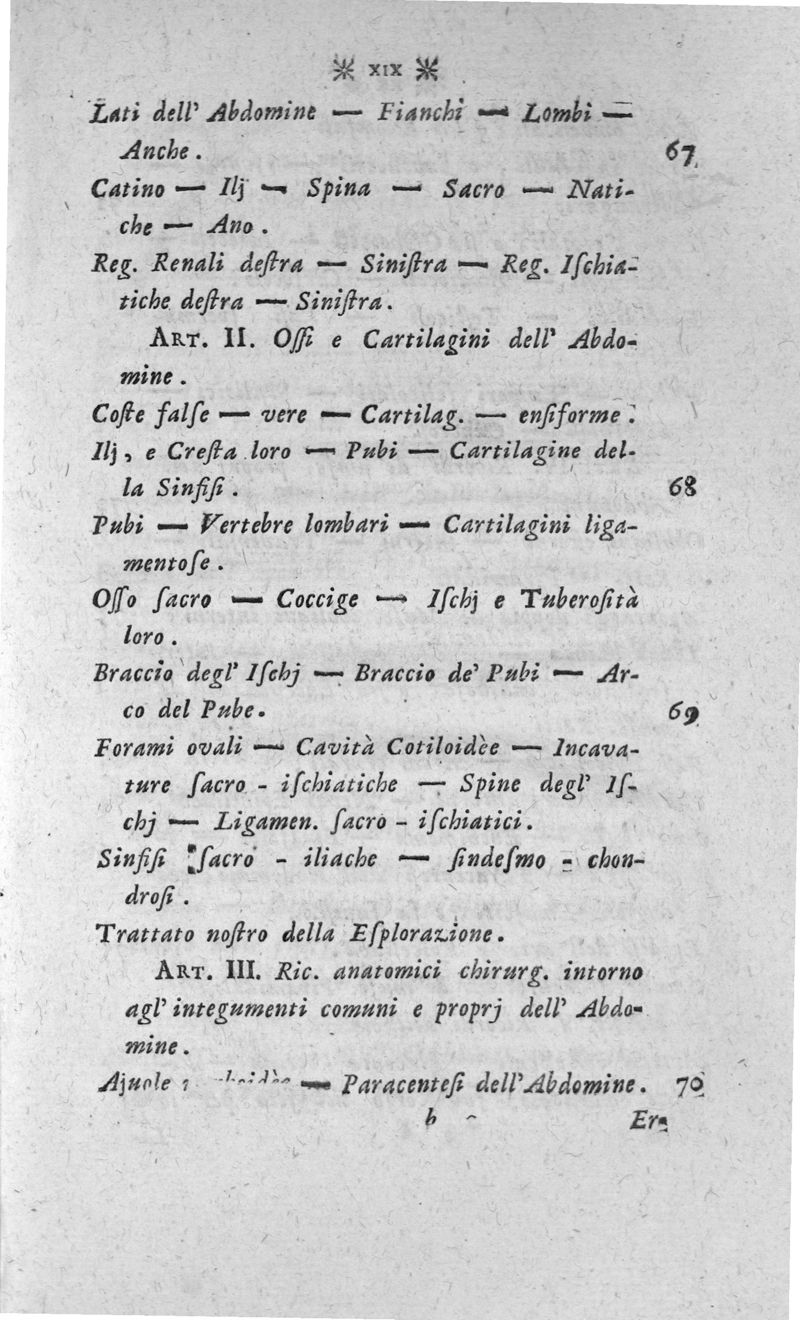 ✳ XIX ✳
Lati dell' Abdomine — Fianchi — Lombi —
Anche . 67
Catino — Ilj — Spina — Sacro — Nati-
che — Ano .
Reg. Renali deſtra — Siniſtra — Reg. Iſchia-
tiche deſtra — Siniſtra .
ART. II. Oſſi e Cartilagini dell' Abdo-
mine .
Coſte falſe — vere — Cartilag. — enſiforme .
Ilj , e Creſta loro — Pubi — Cartilagine del-
la Sinfiſi . 68
Pubi — Vertebre lombari — Cartilagini liga-
mentoſe .
Oſſo ſacro — Coccige — Iſchj e Tuberoſità
loro .
Braccio degl' Iſchj — Braccio de' Pubi — Ar-
co del Pube . 69
Forami ovali — Cavità Cotiloidèe — Incava-
ture ſacro - iſchiatiche — Spine degl' Iſ-
chj — Ligamen. ſacro - iſchiatici .
Sinfiſi ſacro - iliache — ſindeſmo - chon-
droſi .
Trattato noſtro della Eſplorazione .
ART. III. Ric. anatomici chirurg. intorno
agl' integumenti comuni e proprj dell' Abdo-
mine .
Ajuole — Paracenteſi dell' Abdomine . 70
b Er-